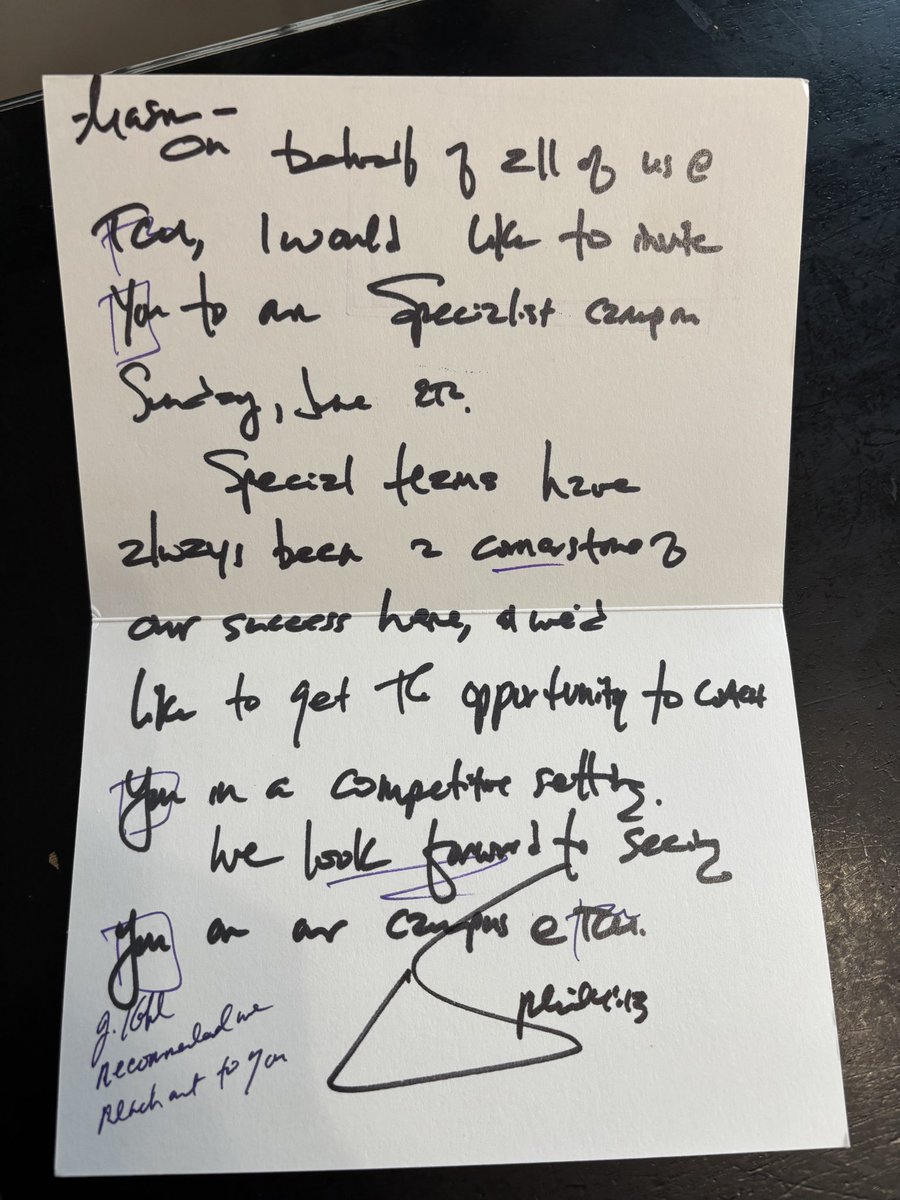 -Mason-
On behalf of all of us @
TCU, I would like to invite
You to our Specialist camp on
Sunday, June
Special teams have
always been a cornerstone of
our success here, & we'd
like to get the opportunity to coach
You in a competitive setting.
We look forward to seeing
You on our campus @ TCU.
Phil 4:13
recommended we
reach out to you